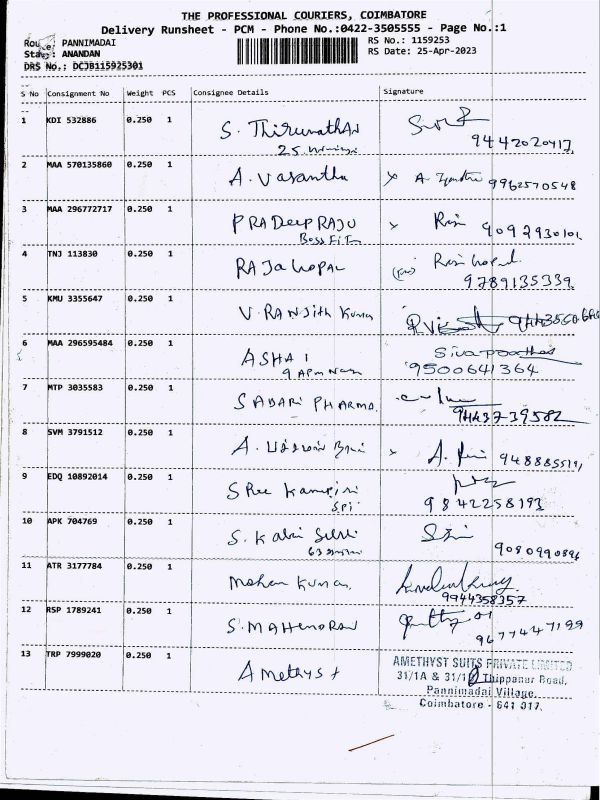 THE PROFESSIONAL COURIERS, COIMBATORE
Delivery Runsheet - PCM - Phone No.:0422-3505555 - Page No.:1
Route: PANNIMADAI
RS No.: 1159253
Staff: ANANDAN
RS Date: 25-Apr-2023
DRS No.: DCJB115925301
S No Consignment No Weight PCS Consignee Details Signature
1 KDI 532886 0.250 1 S. Thirunathan
9442020417
2 MAA 570135860 0.250 1 A. Vasantha x A. 9962570548
3 MAA 296772717 0.250 1 PRADeeP RAJU x 9092930101
Boss Fit
4 TNJ 113830 0.250 1 RAJaGOPAL
9789135339
5 KMU 3355647 0.250 1 V. RANJith Kumar
6 MAA 296595484 0.250 1 ASHA I
9500641364
7 MTP 3035583 0.250 1 SABARI PHARMA
9443739582
8 SVM 3791512 0.250 1 A. x A.
9 EDQ 10892014 0.250 1 SRee
9842258193
10 APK 704769 0.250 1 S.
11 ATR 3177784 0.250 1 Mohan Kumar
9944358357
12 RSP 1789241 0.250 1 S. MAHENDRAN
9677447199
13 TRP 7999020 0.250 1 Amethyst
AMETHYST SUITS PRIVATE LIMITED
31/1A & 31/1 Thippanur Road,
Pannimadai Village,
Coimbatore - 641 017.